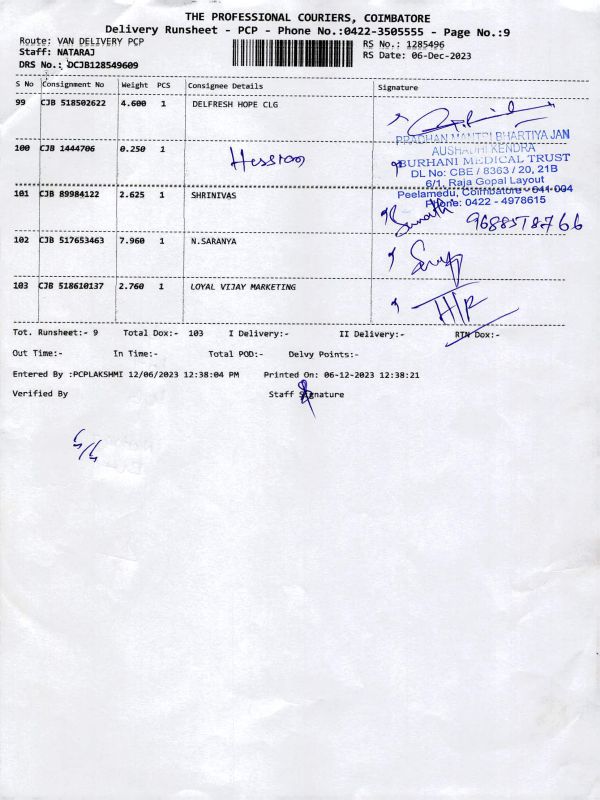 THE PROFESSIONAL COURIERS, COIMBATORE
Delivery Runsheet - PCP - Phone No.:0422-3505555 - Page No.:9
Route: VAN DELIVERY PCP
RS No.: 1285496
Staff: NATARAJ
RS Date: 06-Dec-2023
DRS No.: DCJB128549609
S No Consignment No Weight PCS Consignee Details Signature
99 CJB 518502622 4.600 1 DELFRESH HOPE CLG
100 CJB 1444706 0.250 1
PRADHAN MANTRI BHARTIYA JAN
AUSHADHI KENDRA
BURHANI MEDICAL TRUST
DL No: CBE / 8363 / 20, 21B
6/1, Raja Gopal Layout
Peelamedu, Coimbatore - 641 004
Phone: 0422 - 4978615
101 CJB 89984122 2.625 1 SHRINIVAS
9688578766
102 CJB 517653463 7.960 1 N.SARANYA
103 CJB 518610137 2.760 1 LOYAL VIJAY MARKETING
Tot. Runsheet:- 9 Total Dox:- 103 I Delivery:- II Delivery:- RTN Dox:-
Out Time:- In Time:- Total POD:- Delvy Points:-
Entered By :PCPLAKSHMI 12/06/2023 12:38:04 PM Printed On: 06-12-2023 12:38:21
Verified By Staff Signature